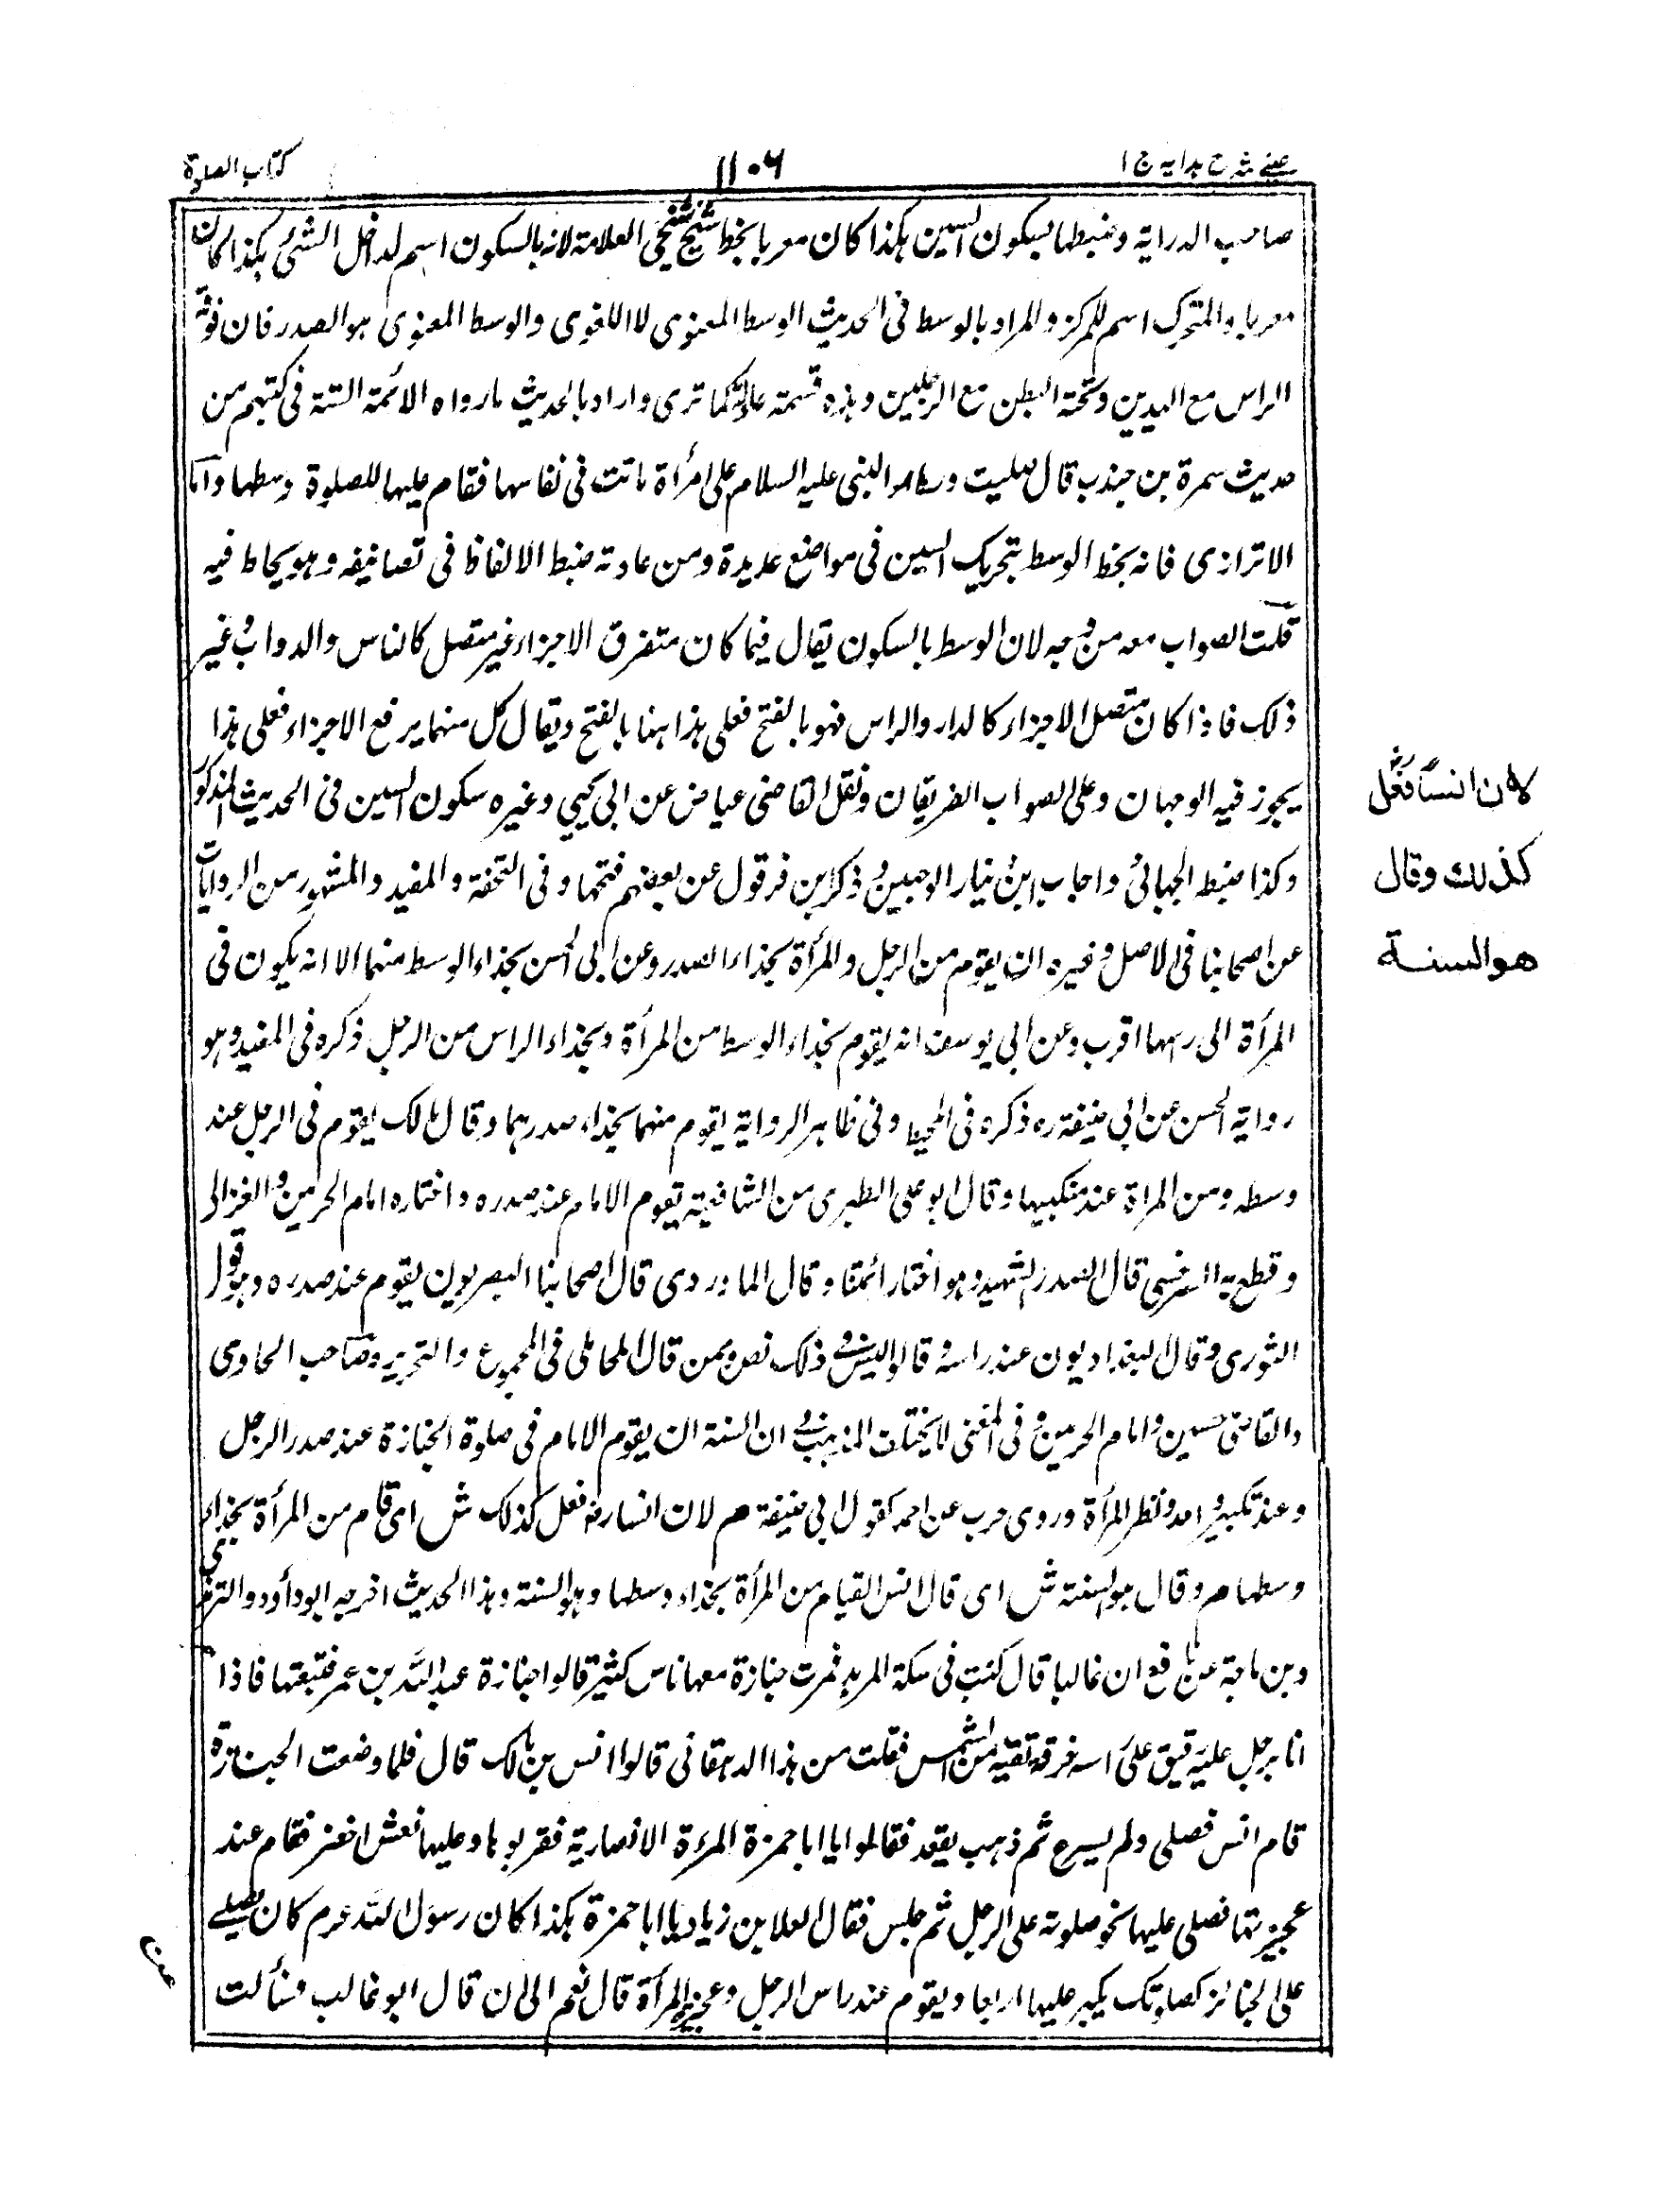 عینی شرح ہدایہ ج ا
۱۱۰۶
کتاب الصلوة
صاحب الدرایة وضبطها بسکون السین هکذا کان معربا بخط شیخ شیخی العلامة لانه بالسکون اسم لداخل الشئ هکذا کان
معربا والمتحرک اسم للمرکز والمراد بالوسط فی الحدیث الوسط المعنوی لا اللغوی والوسط المعنوی هو الصدر فان فوقه
الراس مع الیدین وتحته البطن مع الرجلین وهذه قسمة عادلة کما تری واراد بالحدیث ما رواه الائمة الستة فی کتبهم من
حدیث سمرة بن جندب قال صلیت وراء النبی علیه السلام علی امرأة ماتت فی نفاسها فقام علیها للصلوة وسطها واما
الاترازی فانه بخط الوسط بتحریک السین فی مواضع عدیدة ومن عادته ضبط الالفاظ فی تصانیفه وهو یحاط فیه
قلت الصواب معه من وجه لان الوسط بالسکون یقال فیما کان متفرق الاجزاء غیر متصل کالناس والدواب وغیر
ذلک فاذا کان متصل الاجزاء کالدار والراس فهو بالفتح فعلی هذا هنا بالفتح ویقال کل منهما یرفع الاجزاء فعلی هذا
یجوز فیه الوجهان وعلی الصواب الفریقان ونقل القاضی عیاض عن ابی یحیی وغیره سکون السین فی الحدیث المذکور
وکذا ضبط الجبائی واجاب ابن نیار الوجهین وذکر ابن قرقول عن بعضهم فتحها وفی التحفة والمفید والمشهور من الروایات
عن اصحابنا فی الاصل وغیره ان یقوم من الرجل والمرأة بحذاء الصدر وعن ابی الحسن بحذاء الوسط منهما الا انه یکون فی
المرأة الی راسها اقرب وعن ابی یوسف انه یقوم بحذاء الوسط من المرأة وبحذاء الراس من الرجل ذکره فی المفید وهو
روایة الحسن عن ابی حنیفة رہ ذکره فی المحیط وفی ظاهر الروایة یقوم منهما بحذاء صدرهما وقال مالک یقوم فی الرجل عند
وسطه ومن المراة عند منکبیها وقال ابو علی الطبری من الشافعیة یقوم الامام عند صدره واختاره امام الحرمین والغزالی
وقطع به السرخسی قال الصدر الشهید وهو اختیار ائمتنا وقال الماوردی قال اصحابنا البصریون یقوم عند صدره وهو قول
الثوری وقال البغدادیون عند راسه وقالوا لیس فی ذلک نص وممن قال المحاملی فی المجموع والتجرید وصاحب الحاوی
والقاضی حسین وامام الحرمین وفی المغنی لا یختلف المذهب فی ان السنة ان یقوم الامام فی صلوة الجنازة عند صدر الرجل
وعند وسط المرأة وروی حرب عن احمد کقول ابی حنیفة م لان انسا رض فعل کذلک ش ای قام من المرأة بحذاء
وسطها م وقال هو السنة ش ای قال انس القیام من المرأة بحذاء وسطها وهو السنة وهذا الحدیث اخرجه ابو داود والترمذی
وبن ماجة عن نافع ان غالبا قال کنت فی سکة المربد فمرت جنازة معها ناس کثیر قالوا جنازة عبد الله بن عمر فتبعتها فاذا
انا برجل علیه رقیق علی راسه خرقة تقیه من الشمس فقلت من هذا الدهقانی قالوا انس بن مالک قال فلما وضعت الجنازة
قام انس فصلی ولم یسرع ثم ذهب یقعد فقالوا یا ابا حمزة المرءة الانصاریة فقربوها وعلیها نعش اخضر فقام عند
عجیزتها فصلی علیها نحو صلوته علی الرجل ثم جلس فقال العلا بن زیاد یا ابا حمزة هکذا کان رسول الله عم کان یصلی
علی الجنائز کصلوتک یکبر علیها اربعا ویقوم عند راس الرجل وعجیزة المرأة قال نعم الی ان قال ابو غالب فسألت
عن
لان انسا رض فعل
کذلك وقال
هو السنة